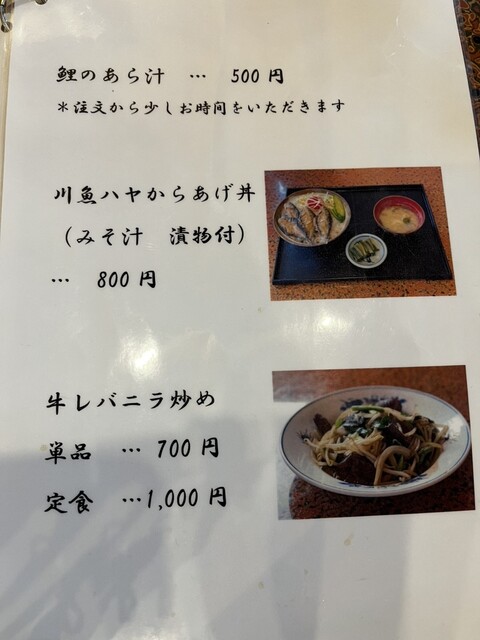 鯉のあら汁 … 500円
＊注文から少しお時間をいただきます
川魚ハヤからあげ丼
（みそ汁 漬物付）
… 800円
牛レバニラ炒め
単品 … 700円
定食 …1,000円